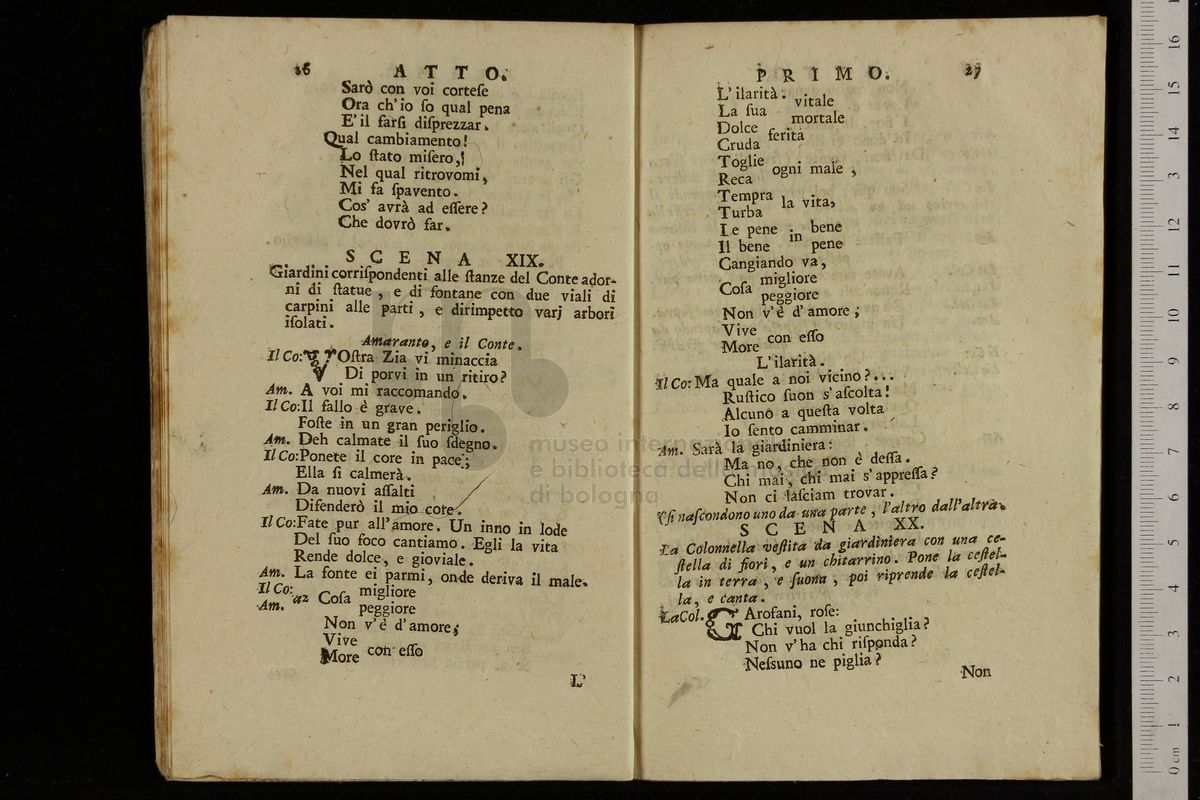 26 ATTO.
Sarò con voi corteſe
Ora ch'io ſo qual pena
E' il farſi diſprezzar.
Qual cambiamento!
Lo ſtato miſero,!
Nel qual ritrovomi,
Mi fa ſpavento.
Cos' avrà ad eſſere?
Che dovrò far.
SCENA XIX.
Giardini corriſpondenti alle ſtanze del Conte ador-
ni di ſtatue, e di fontane con due viali di
carpini alle parti, e dirimpetto varj arbori
iſolati.
Amaranto, e il Conte.
Il Co: VOſtra Zia vi minaccia
Di porvi in un ritiro?
Am. A voi mi raccomando.
Il Co: Il fallo è grave.
Foſte in un gran periglio.
Am. Deh calmate il ſuo ſdegno.
Il Co: Ponete il core in pace;
Ella ſi calmerà.
Am. Da nuovi aſſalti
Difenderò il mio core.
Il Co: Fate pur all'amore. Un inno in lode
Del ſuo foco cantiamo. Egli la vita
Rende dolce, e gioviale.
Am. La fonte ei parmi, onde deriva il male.
Il Co: migliore
a2 Coſa
Am. peggiore
Non v'è d'amore;
Vive
con eſſo
More
L'
PRIMO. 27
L' ilarità:
vitale
La ſua
mortale
Dolce
ferita
Cruda
Toglie
ogni male,
Reca
Tempra
la vita,
Turba
Le pene bene
in
Il bene pene
Cangiando va,
migliore
Coſa
peggiore
Non v'è d'amore;
Vive
con eſſo
More
L'ilarità.
Il Co: Ma quale a noi vicino?...
Ruſtico ſuon s'aſcolta!
Alcuno a queſta volta
Io ſento camminar.
Am. Sarà la giardiniera:
Ma no, che non è deſſa.
Chi mai, chi mai s'appreſſa?
Non ci laſciam trovar.
(ſi naſcondono uno da una parte, l'altro dall'altra.
SCENA XX.
La Colonnella veſtita da giardiniera con una ce-
ſtella di fiori, e un chitarrino. Pone la ceſtel-
la in terra, e ſuona, poi riprende la ceſtel-
la, e canta.
La Col. GArofani, roſe:
Chi vuol la giunchiglia?
Non v'ha chi riſponda?
Neſsuno ne piglia?
Non
museo internazionale
e biblioteca della musica
di bologna
0 cm 1 2 3 4 5 6 7 8 9 10 11 12 13 14 15 16